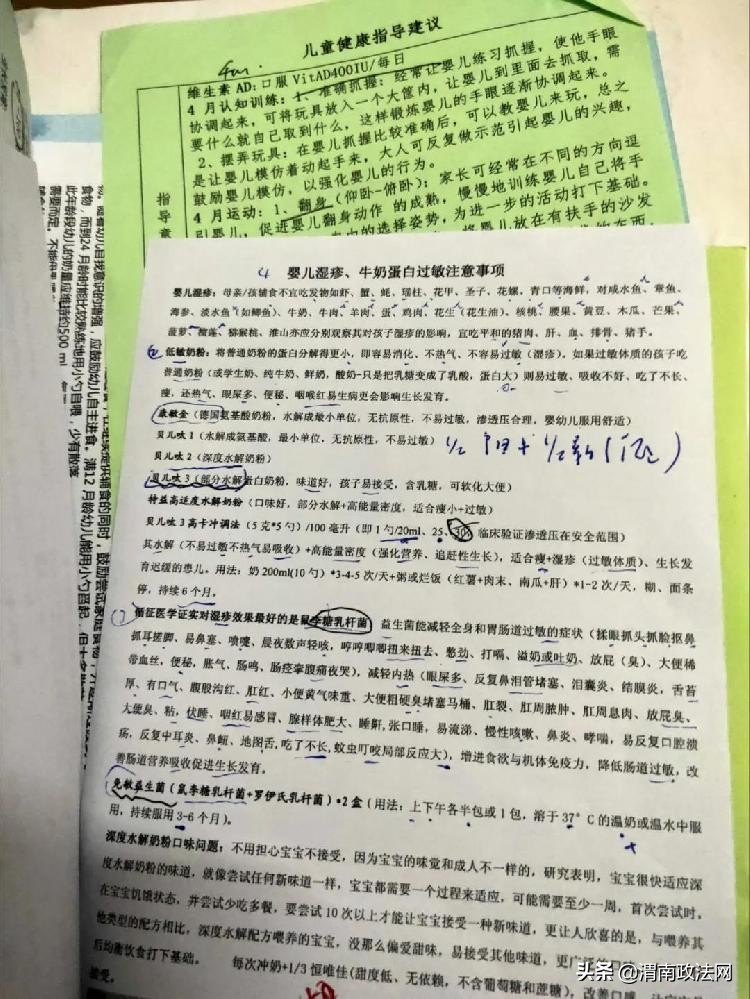 儿童健康指导建议
维生素 AD: 口服 VitAD400IU/每日
4 月认知训练: 1、准确抓握: 经常让婴儿练习抓握, 使他手眼
协调起来, 可将玩具放入一个大筐内, 让婴儿到里面去抓取, 需
要什么就自己取到什么, 这样锻炼婴儿的手眼逐渐协调起来。
2、摆弄玩具: 在婴儿抓握比较准确后, 可以教婴儿来玩, 总之
是让婴儿模仿着动起手来, 大人可反复做示范引起婴儿的兴趣,
鼓励婴儿模仿, 以强化婴儿的行为。
4 月运动: 1、翻身(仰卧-俯卧): 家长可经常在不同的方向逗
引婴儿, 促进婴儿翻身动作 的成熟, 慢慢地训练婴儿自己将手
的选择姿势, 为进一步的活动打下基础。
婴儿放在有扶手的沙发
指
导
意
食物, 而到24 月龄时能比较熟练地用小勺自喂, 少有散落
此年龄段幼儿的奶量应维持约500 ml
婴儿湿疹、牛奶蛋白过敏注意事项
婴儿湿疹: 母亲/孩辅食不宜吃发物如虾、蟹、蚝、瑶柱、花甲、圣子、花螺、青口等海鲜, 对咸水鱼、章鱼、
海参、淡水鱼(如鲫鱼)、牛奶、牛肉、蛋、鸡肉、花生(花生油)、核桃、腰果、黄豆、木瓜、芒果、
菠萝、榴莲、猕猴桃、淮山亦应分别观察其对孩子湿疹的影响, 宜吃平和的猪肉、肝、血、排骨、猪手。
低敏奶粉: 将普通奶粉的蛋白分解得更小, 即容易消化、不热气、不容易过敏(湿疹), 如果过敏体质的孩子吃
普通奶粉(或学生奶、纯牛奶、鲜奶, 酸奶-只是把乳糖变成了乳酸, 蛋白大)则易过敏、吸收不好、吃了不长、
瘦, 还热气、眼屎多、便秘、咽喉红易生病更会影响生长发育。
康敏金(德国氨基酸奶粉, 水解成最小单位, 无抗原性, 不易过敏, 渗透压合理, 婴幼儿服用舒适)
贝儿呔 1(水解成氨基酸, 最小单位, 无抗原性, 不易过敏)
贝儿呔 2(深度水解奶粉)
贝儿呔 3(部分水解蛋白奶粉, 味道好, 孩子易接受, 含乳糖, 可软化大便)
特益高适度水解奶粉(口味好, 部分水解+高能量密度, 适合瘦小+过敏)
贝儿呔 3 高卡冲调法(5 克*5 勺)/100 毫升(即 1 勺/20ml、25、30) 临床验证渗透压在安全范围)
其水解(不易过敏不热气易吸收)+高能量密度(强化营养、追赶性生长), 适合瘦+湿疹(过敏体质)、生长发
育迟缓的患儿。用法: 奶 200ml(10 勺) *3-4-5 次/天+粥或烂饭(红薯+肉末、南瓜+肝)*1-2 次/天, 糊、面条
停, 持续 6 个月。
循征医学证实对湿疹效果最好的是鼠李糖乳杆菌 益生菌能减轻全身和胃肠道过敏的症状(揉眼抓头抓脸抠鼻
抓耳搓脚、易鼻塞、喷嚏、晨夜数声轻咳, 哼哼唧唧扭来扭去、憋劲、打嗝、溢奶或吐奶、放屁(臭)、大便稀
带血丝, 便秘、胀气、肠鸣, 肠痉挛腹痛夜哭), 减轻内热(眼屎多、反复鼻泪管堵塞、泪囊炎、结膜炎, 舌苔
厚、有口气、腹股沟红、肛红、小便黄气味重、大便粗硬臭堵塞马桶、肛裂、肛周脓肿、肛周息肉、放屁臭、
大便臭、粘, 伏睡、咽红易感冒、腺样体肥大、睡鼾, 张口睡, 易流涕、慢性咳嗽、鼻炎、哮喘, 易反复口腔溃
疡, 反复中耳炎、鼻衄、地图舌, 吃了不长, 蚊虫叮咬局部反应大), 增进食欲与机体免疫力, 降低肠道过敏, 改
善肠道营养吸收促进生长发育。
免敏益生菌(鼠李糖乳杆菌+罗伊氏乳杆菌)*2 盒(用法: 上下午各半包或 1 包, 溶于 37° C 的温奶或温水中服
用, 持续服用 3-6 个月)。
深度水解奶粉口味问题: 不用担心宝宝不接受, 因为宝宝的味觉和成人不一样的, 研究表明, 宝宝很快适应深
度水解奶粉的味道, 就像尝试任何新味道一样, 宝宝都需要一个过程来适应, 可能需要至少一周, 首次尝试时,
在宝宝饥饿状态, 并尝试少吃多餐, 要尝试 10 次以上才能让宝宝接受一种新味道, 更让人欣喜的是, 与喂养其
他类型的配方相比, 深度水解配方喂养的宝宝, 没那么偏爱甜味, 易接受其他味道, 更广泛的口
后均衡饮食打下基础。 每次冲奶+1/3 恒唯佳(甜度低、无依赖, 不含葡萄糖和蔗糖), 改善口感
接受,
头条 @渭南政法网